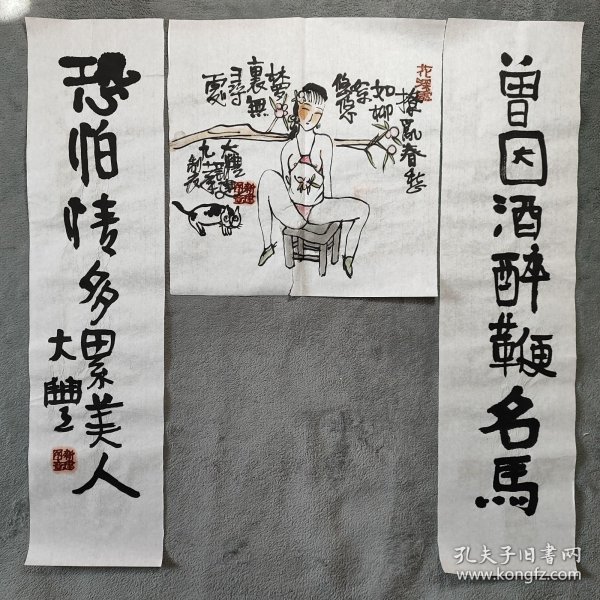 曾因酒醉鞭名馬
恐怕情多累美人
大豐
撩亂春愁
如柳
絮
悠悠
夢
裏無
尋
處
孔夫子旧书网
www.kongfz.com